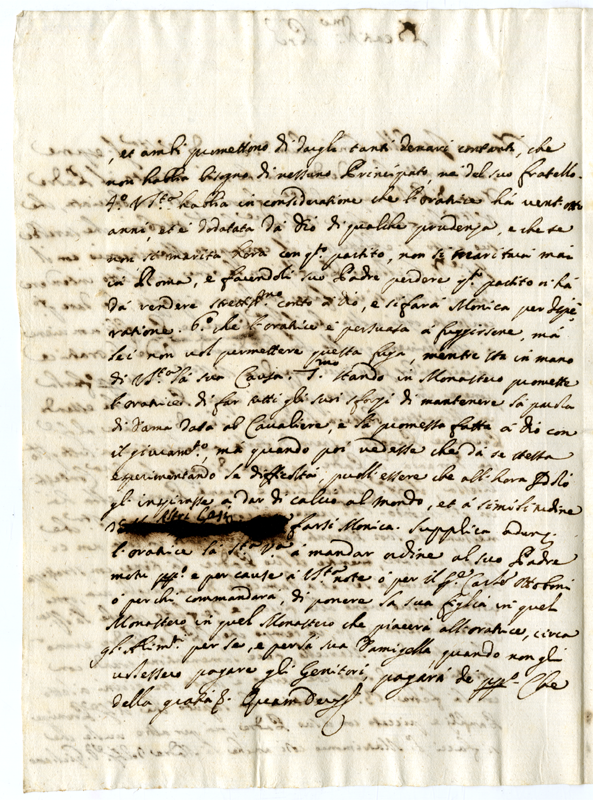 , et ambi promettono di dargli tanti denari contanti, che
non habbia bisogno di nessuno Principato, ne del suo fratello.
4.º V. Stà habbia in consideratione che l'oratrice hà vent'otto
anni, et è dodatata dà Dio di qualche prudenza, e che se
non si marita hora con qto partito, non si mariterà mai
in Roma, e facendoli suo Padre perdere qto partito n'hà
dà rendere conto à Dio, e si farà Monica per dispe
ratione. 6.º che l'oratrice è persuasa à fuggirsene, mà
lei non vol permettere questa fuga, mentre stà in mano
di V. Stà la sua Causa. 7.mo stando in Monastero promette
l'oratrice di far tutti gli suoi sforzi di mantenere la parola
di Dama data al Cavaliere, e la promessa fatta à Dio con
il giuramto, mà quando poi vedesse che dà se stessa
esperimentando le difficoltà, puol essere che all'hora Dio
gl'inspirasse à dar di calcio al mondo, et à
farsi Monica. Supplica
l'oratrice la Stà Va à mandar ordine al suo Padre
motu ppº e per cause à V. Stà note ò per il
ò per chi commandarà, di ponere la sua figlia in quel
Monastero in quel Monastero che piacerà all'oratrice, circa
gl'Alimti per se, e per la sua Damigella, quando non gli
volessero pagare gli Genitori, pagarà de ppº Che
della gratia &. Quam Deus &